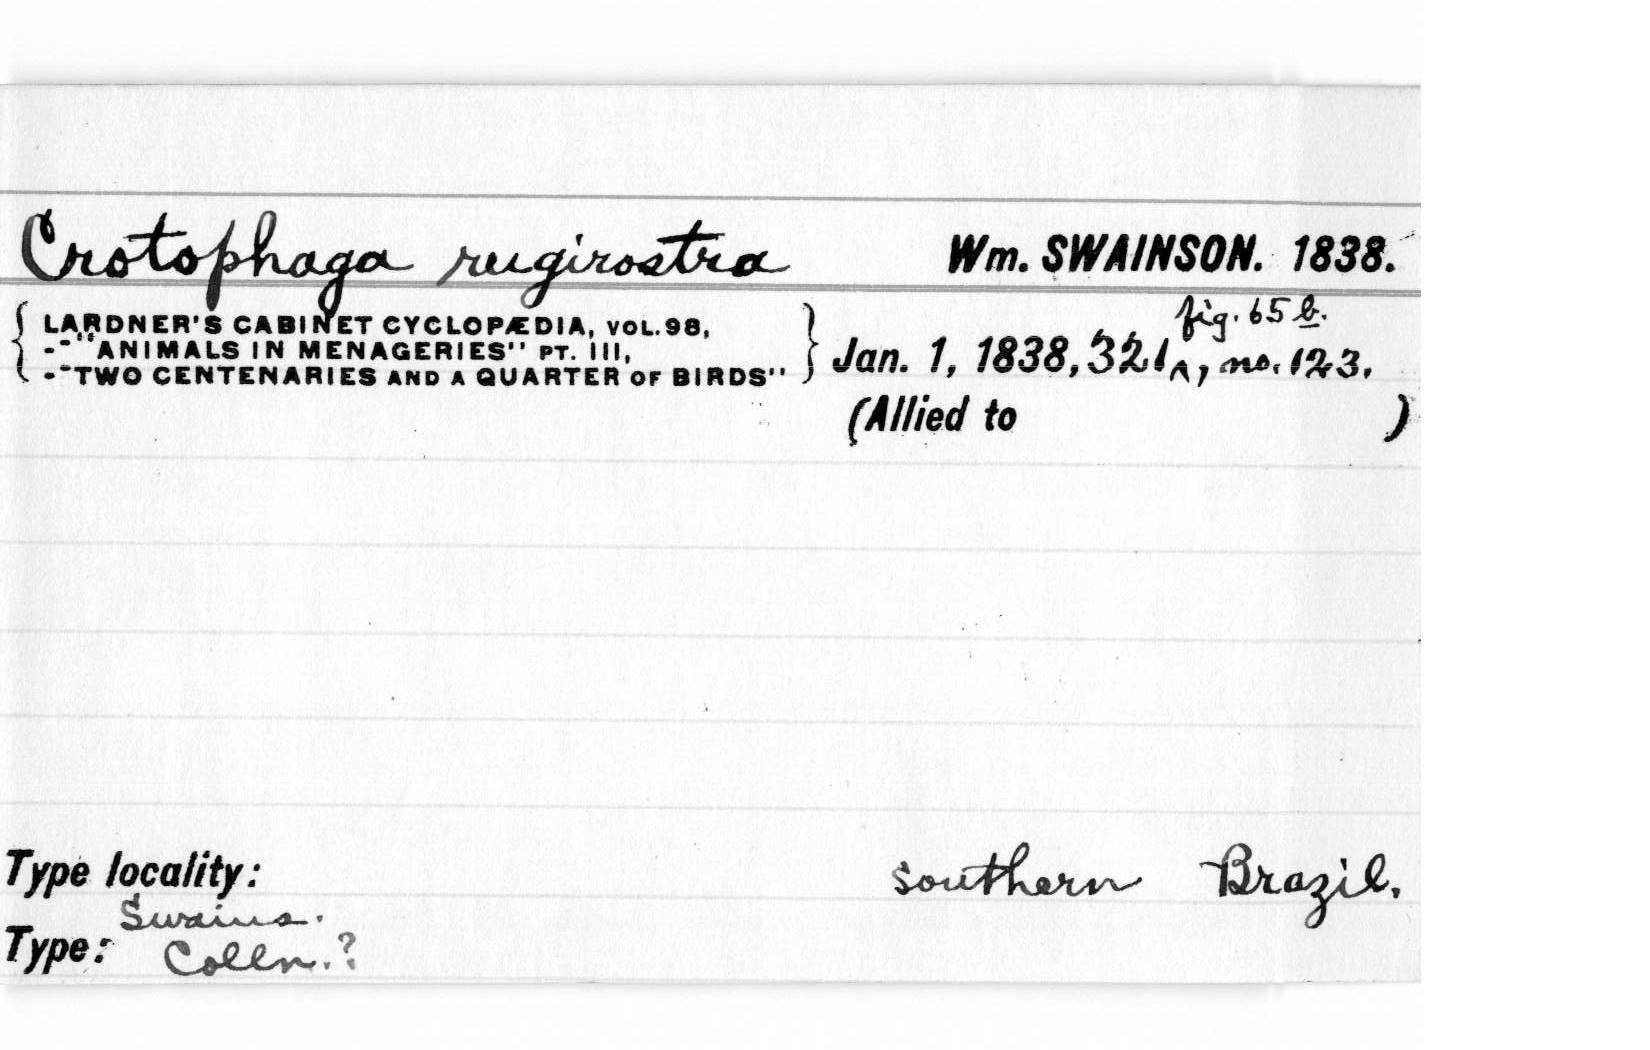 Crotophaga rugirostra Wm. SWAINSON. 1838.
fig. 65 b.
{ LARDNER'S CABINET CYCLOPÆDIA, VOL. 98,
--"ANIMALS IN MENAGERIES" PT. III,
--"TWO CENTENARIES AND A QUARTER OF BIRDS" } Jan. 1, 1838, 321^, no. 123.
(Allied to )
Type locality: southern Brazil.
Swains.
Type: Colln.?